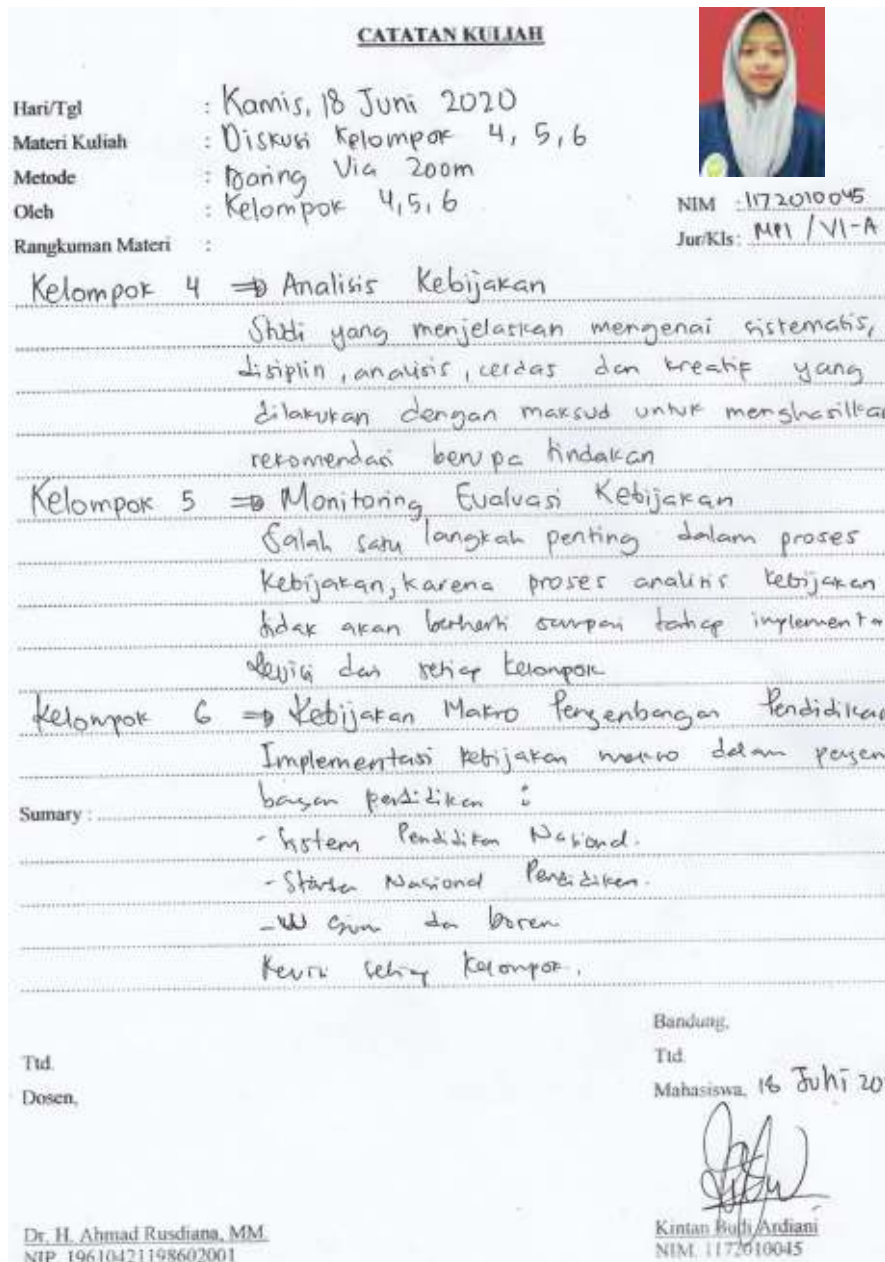 CATATAN KULIAH
Hari/Tgl : Kamis, 18 Juni 2020
Materi Kuliah : Diskusi Kelompok 4, 5, 6
Metode : Daring Via Zoom
Oleh : Kelompok 4, 5, 6
NIM : 1172010045
Jur/Kls : MPI / VI-A
Rangkuman Materi :
Kelompok 4 ⇒ Analisis Kebijakan
Studi yang menjelaskan mengenai sistematis,
disiplin, analisis, cerdas dan kreatif yang
dilakukan dengan maksud untuk menghasilkan
rekomendasi berupa tindakan
Kelompok 5 ⇒ Monitoring Evaluasi Kebijakan
Salah satu langkah penting dalam proses
Kebijakan, karena proses analisis kebijakan
tidak akan berhenti sampai tahap implementa
Revisi dari setiap kelompok
Kelompok 6 ⇒ Kebijakan Makro Pengembangan Pendidikan
Implementasi kebijakan makro dalam pengem
bangan pendidikan :
Sumary :
- Sistem Pendidikan Nasional.
- Standar Nasional Pendidikan.
- UU Guru dan
Revisi setiap Kelompok.
Bandung,
Ttd.
Ttd
Dosen,
Mahasiswa, 18 Juni 20
Dr. H. Ahmad Rusdiana, MM.
NIP. 19610421198602001
Kintan Budi Ardiani
NIM. 1172010045